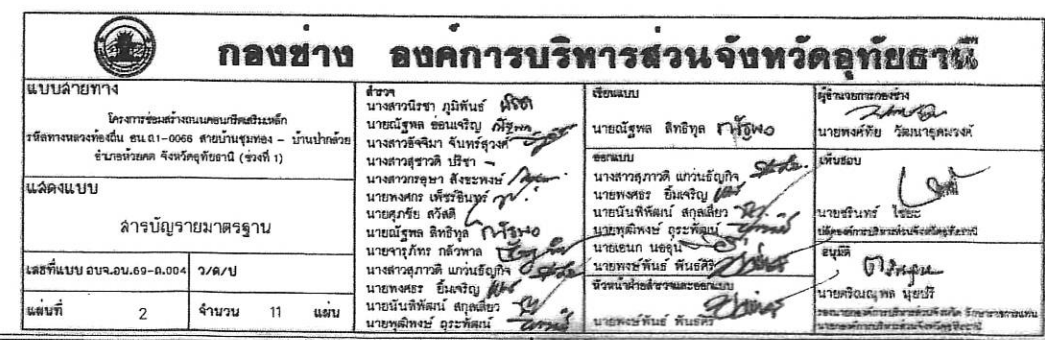 กองช่าง องค์การบริหารส่วนจังหวัดอุทัยธานี
แบบสายทาง
โครงการซ่อมสร้างถนนคอนกรีตเสริมเหล็ก
รหัสทางหลวงท้องถิ่น อน.ถ1-0066 สายบ้านชุมทอง - บ้านปากล้วย
อำเภอห้วยคต จังหวัดอุทัยธานี (ช่วงที่ 1)
แสดงแบบ
สารบัญรายมาตรฐาน
เลขที่แบบ อบจ.อน.69-ถ.004 ว/ด/ป
แผ่นที่ 2 จำนวน 11 แผ่น
สำรวจ
นางสาวนิรชา ภูมิพันธ์
นายณัฐพล อ่อนเจริญ
นางสาวอัจจิมา จันทร์สุวงศ์
นางสาวสุชาวดี ปรีชา
นางสาวกรอุษา สังขะพงษ์
นายพงศกร เพ็ชรอินทร์
นายศุภชัย สวัสดี
นายณัฐพล สิทธิทูล
นายจารุภัทร กล้วพาล
นางสาวสุภาวดี แก่วนธัญกิจ
นายพงศธร ยิ้มเจริญ
นายนันทิพัฒน์ สกุลเลี่ยว
นายพุฒิพงษ์ ถุระพัฒน์
เขียนแบบ
นายณัฐพล สิทธิทูล
ออกแบบ
นางสาวสุภาวดี แก่วนธัญกิจ
นายพงศธร ยิ้มเจริญ
นายนันทิพัฒน์ สกุลเลี่ยว
นายพุฒิพงษ์ ถุระพัฒน์
นายเอนก นอคุน
นายพงษ์พันธ์ พันธ์ศิริ
หัวหน้าฝ่ายสำรวจและออกแบบ
นายพงษ์พันธ์ พันธ์ศิริ
ผู้อำนวยการกองช่าง
นายพงค์ทัย วัฒนาอุดมวงค์
เห็นชอบ
นายชรินทร์ ไชยะ
ปลัดองค์การบริหารส่วนจังหวัดอุทัยธานี
อนุมัติ
รองนายกองค์การบริหารส่วนจังหวัด รักษาราชการแทน
นายกองค์การบริหารส่วนจังหวัดอุทัยธานี